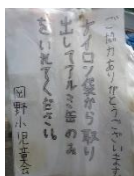 ご協力ありがとうございます
ナイロン袋から取り
出してアルミ缶のみ
をいれてください。
岡野小児童会